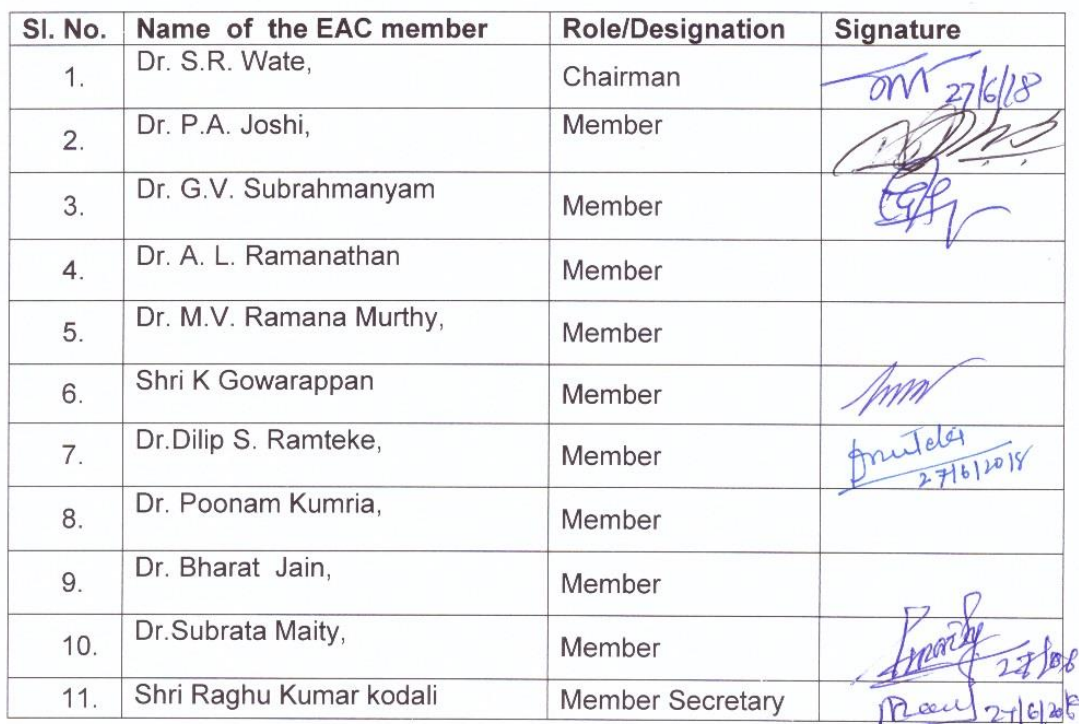 Sl. No. Name of the EAC member Role/Designation Signature
1. Dr. S.R. Wate, Chairman 27/6/18
2. Dr. P.A. Joshi, Member
3. Dr. G.V. Subrahmanyam Member
4. Dr. A. L. Ramanathan Member
5. Dr. M.V. Ramana Murthy, Member
6. Shri K Gowarappan Member
7. Dr.Dilip S. Ramteke, Member 27/6/2018
8. Dr. Poonam Kumria, Member
9. Dr. Bharat Jain, Member
10. Dr.Subrata Maity, Member
11. Shri Raghu Kumar kodali Member Secretary